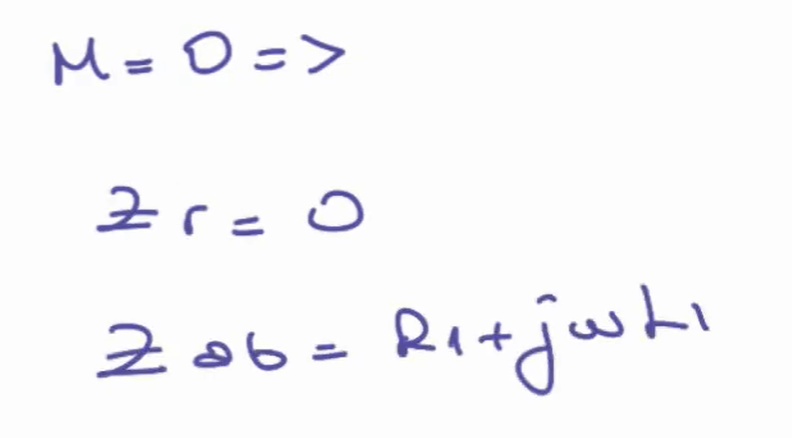 M = 0 =>
Zr = 0
Zab = R1 + jωL1